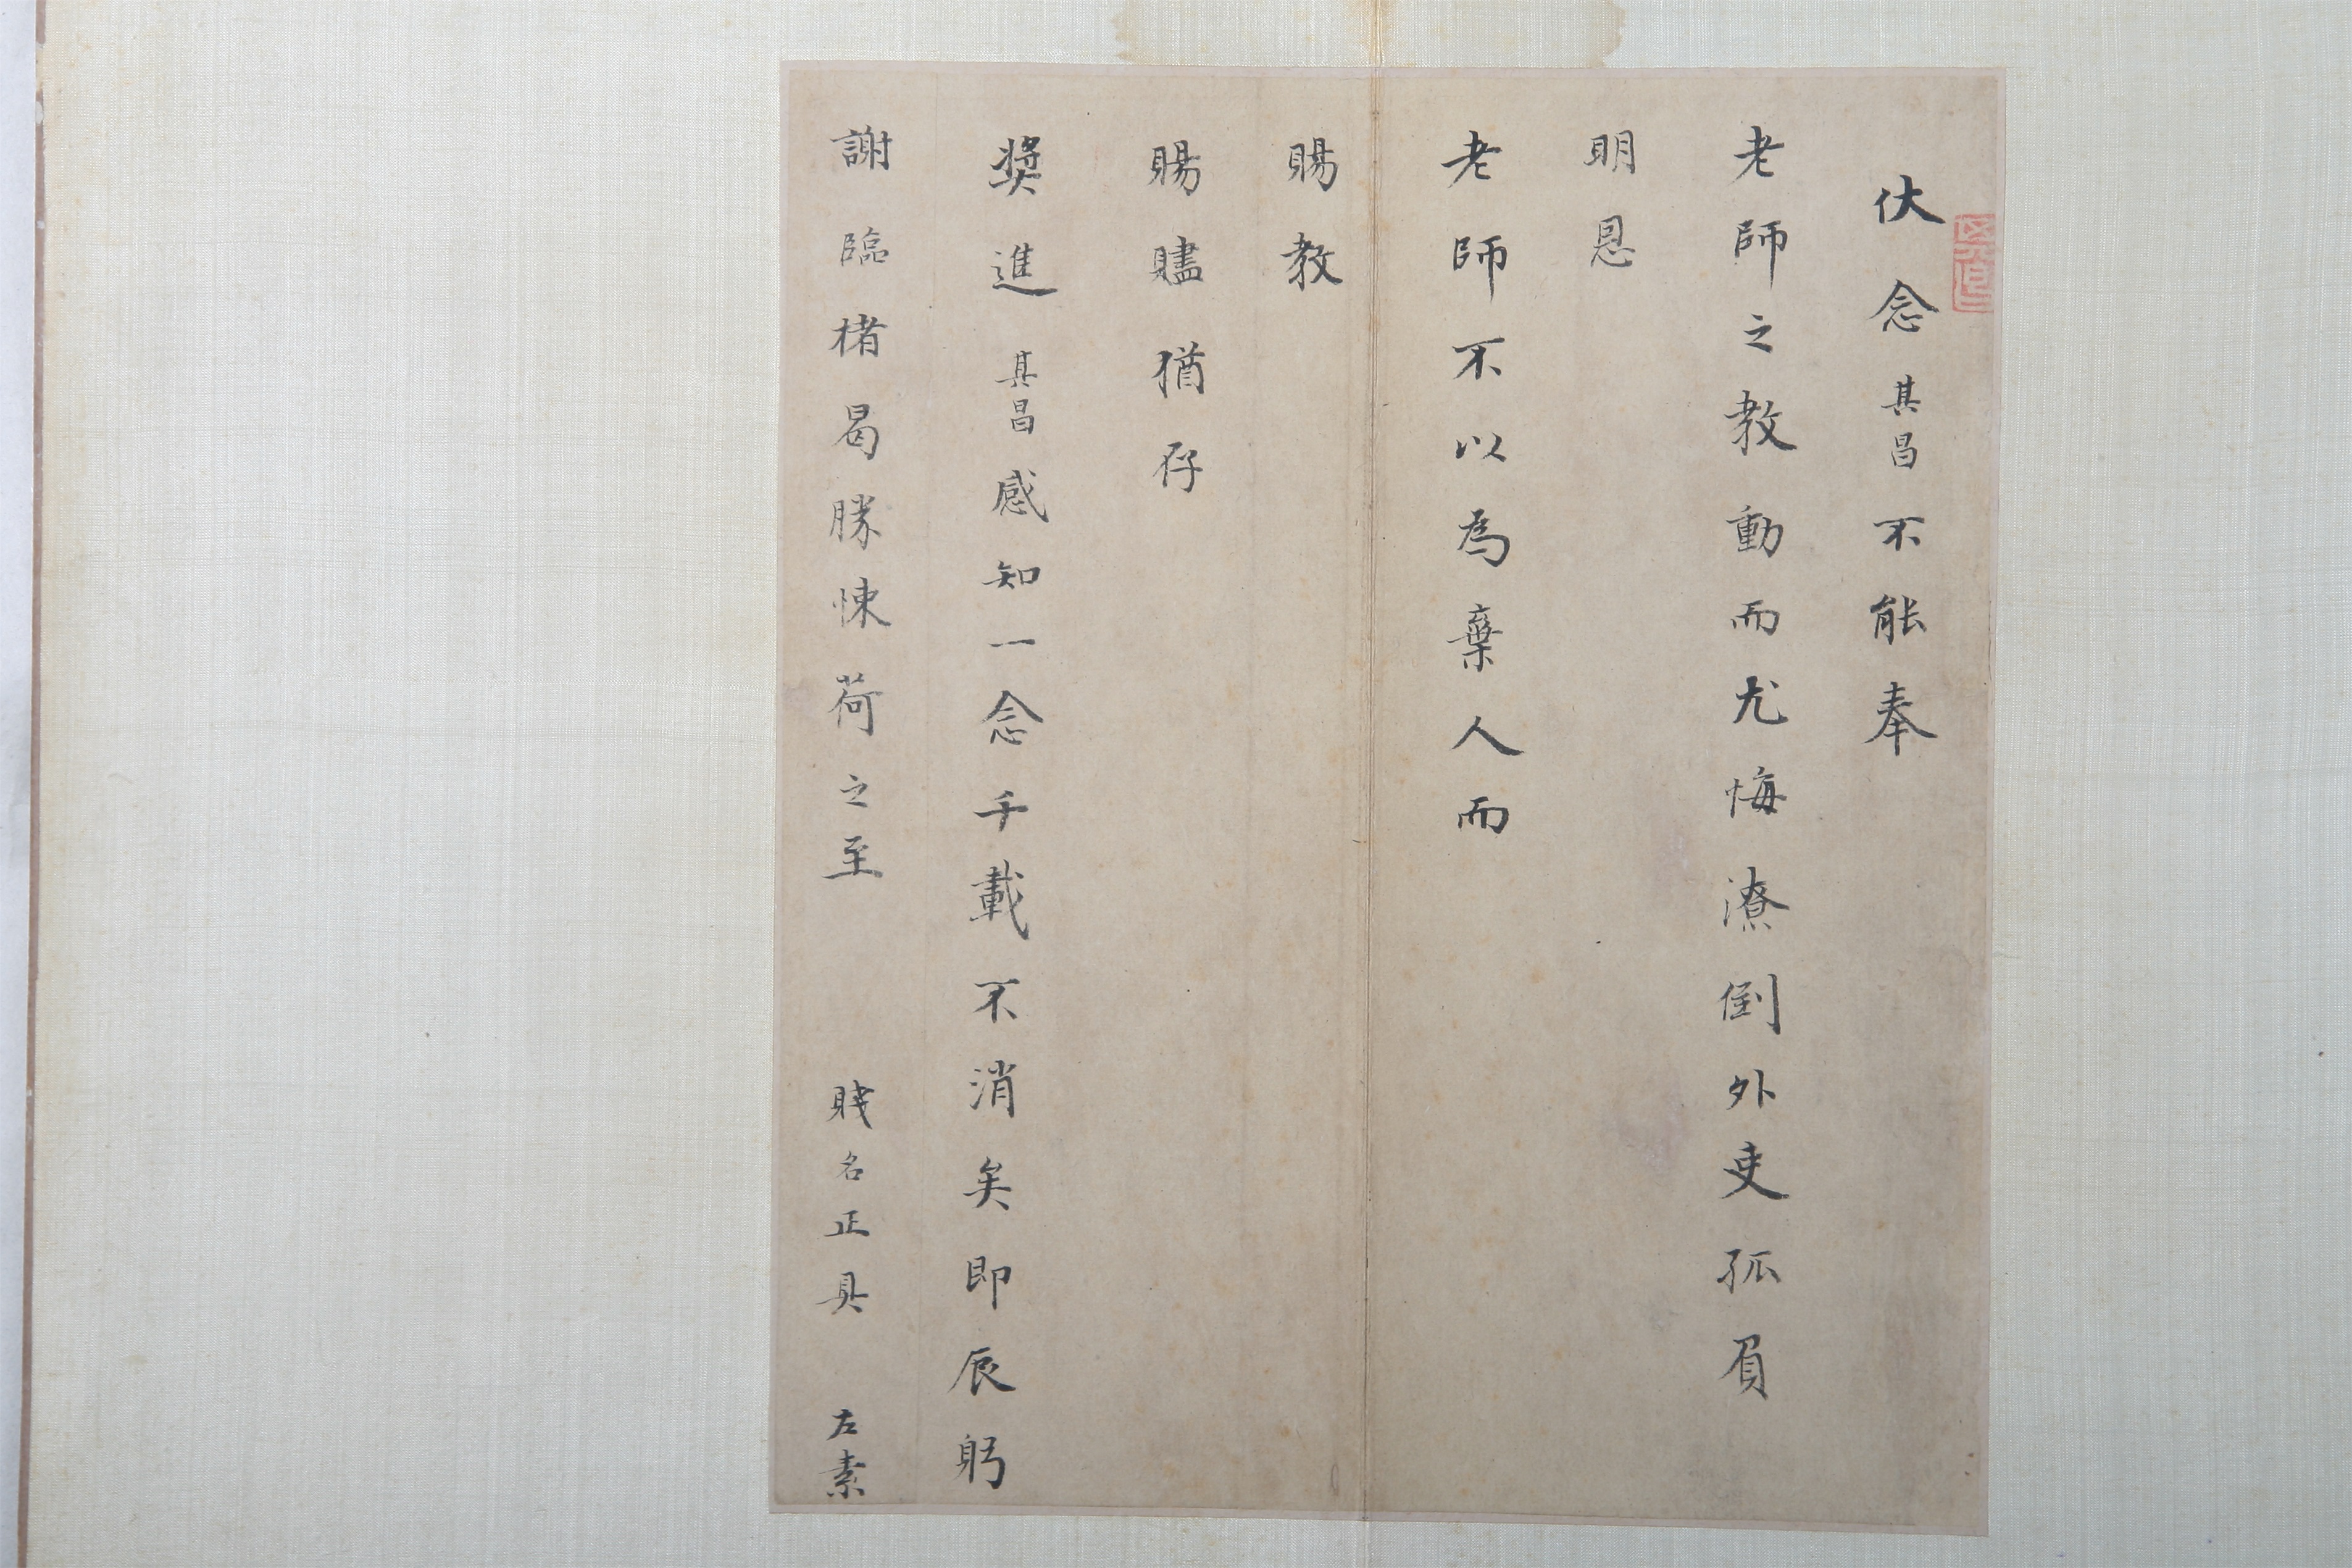 伏念其昌不能奉
老師之教動而尤悔潦倒外吏孤負
明恩
老師不以為棄人而
賜教
賜贐猶存
獎進其昌感知一念千載不消矣即辰躬
謝臨楮曷勝悚荷之至 賤名正具 左素